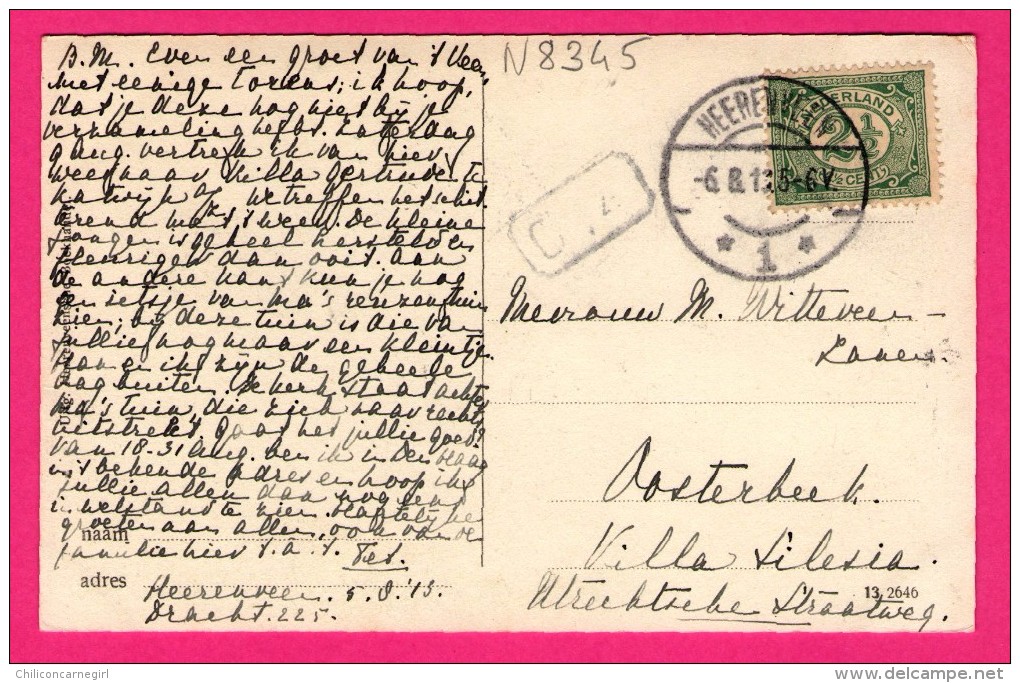 B.M. Even een groet van 't Veen
met eenige torens; ik hoop,
dat je deze nog niet bij je
verzameling hebt. Zaterdag
9 aug. vertrek ik van hier
weer naar Villa Gertrude te
Katwijk a/z. We treffen het schit
terend met 't weer. De kleine
jongen is geheel hersteld en
fleuriger dan ooit. Aan
de andere kant kun je nog
een ietsje van ma's reuzentuin
zien; bij deze tuin is die van
jullie nog maar een kleintje.
Han en ik zijn de geheele
dag buiten. De kerk staat achter
ma's tuin, die zich naar rechts
uitstrekt. Gaat het jullie goed?
Van 18-31 Aug. ben ik in den Haag
in 't bekende adres en hoop ik
jullie allen dan nog eens
in welstand te zien. Hartelijke
groeten aan allen, ook van de
familie hier t.a.t.
naam
adres
Heerenveen. 5.8.'13.
Dracht. 225.
N 8345
HEERENVEEN
-6.8.13.5-6V
* 1 *
NEDERLAND
2½
CENT
Mevrouw M. Witteveen-
Oosterbeek.
Villa Silesia.
Utrechtsche Straatweg.
13, 2646
Chiliconcarnegirl
www.delcampe.net